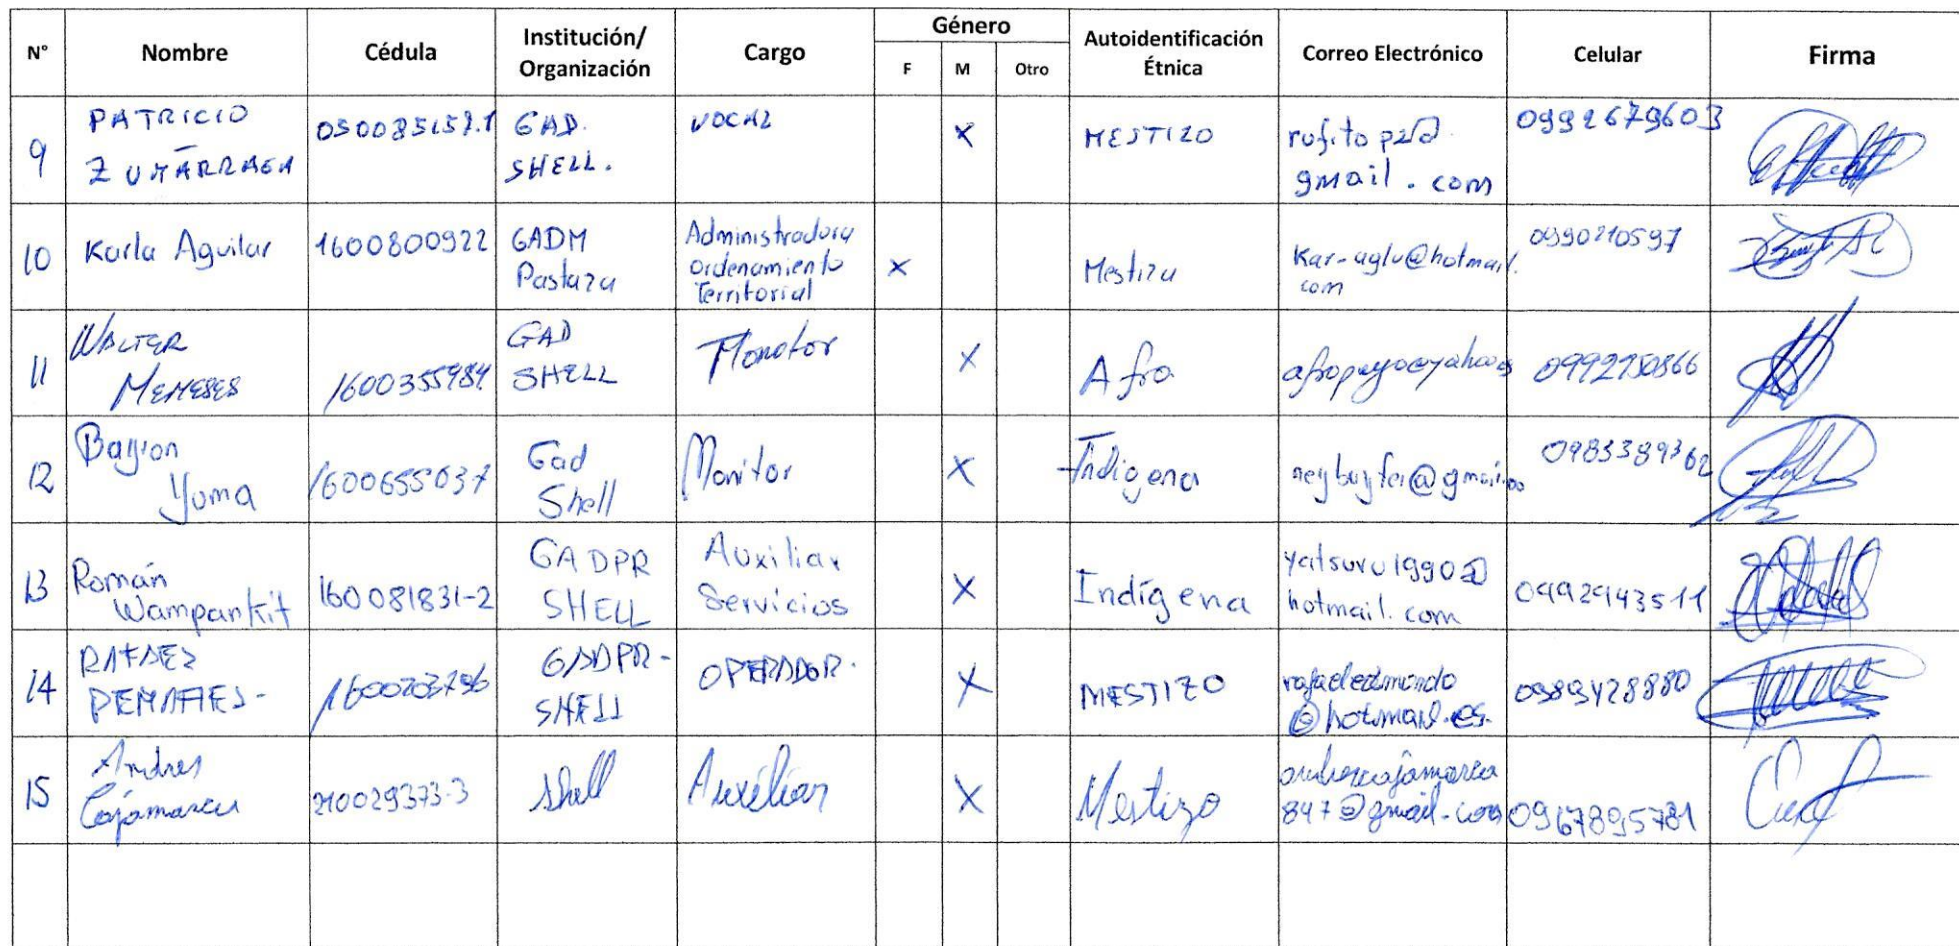 N° Nombre Cédula Institución/ Organización Cargo Género F M Otro Autoidentificación Étnica Correo Electrónico Celular Firma
9 PATRICIO ZUMÁRRAGA 050085158.1 GAD. SHELL. VOCAL X MESTIZO gmail.com 0992679603
10 Karla Aguilar 1600800922 GADM Pastaza Administradora Ordenamiento Territorial X Mestiza kar-aglu@hotmail.com 0990210597
11 WALTER MENESES 1600355984 GAD SHELL Monitor X Afro 0992750866
12 Bayron Yuma 1600655037 Gad Shell Monitor X Indigena 0983389362
13 Román Wampankit 160081831-2 GADPR SHELL Auxiliar Servicios X Indígena yatsuru1990@hotmail.com 0992943511
14 RAFAEL PEÑAFIEL- GADPR-SHELL OPERADOR. X MESTIZO rafaeledmundo@hotmail.es. 0989428880
15 Andres Cajamarca 210029373-3 Shell Auxiliar X Mestizo andrescajamarca847@gmail.com 0967895781